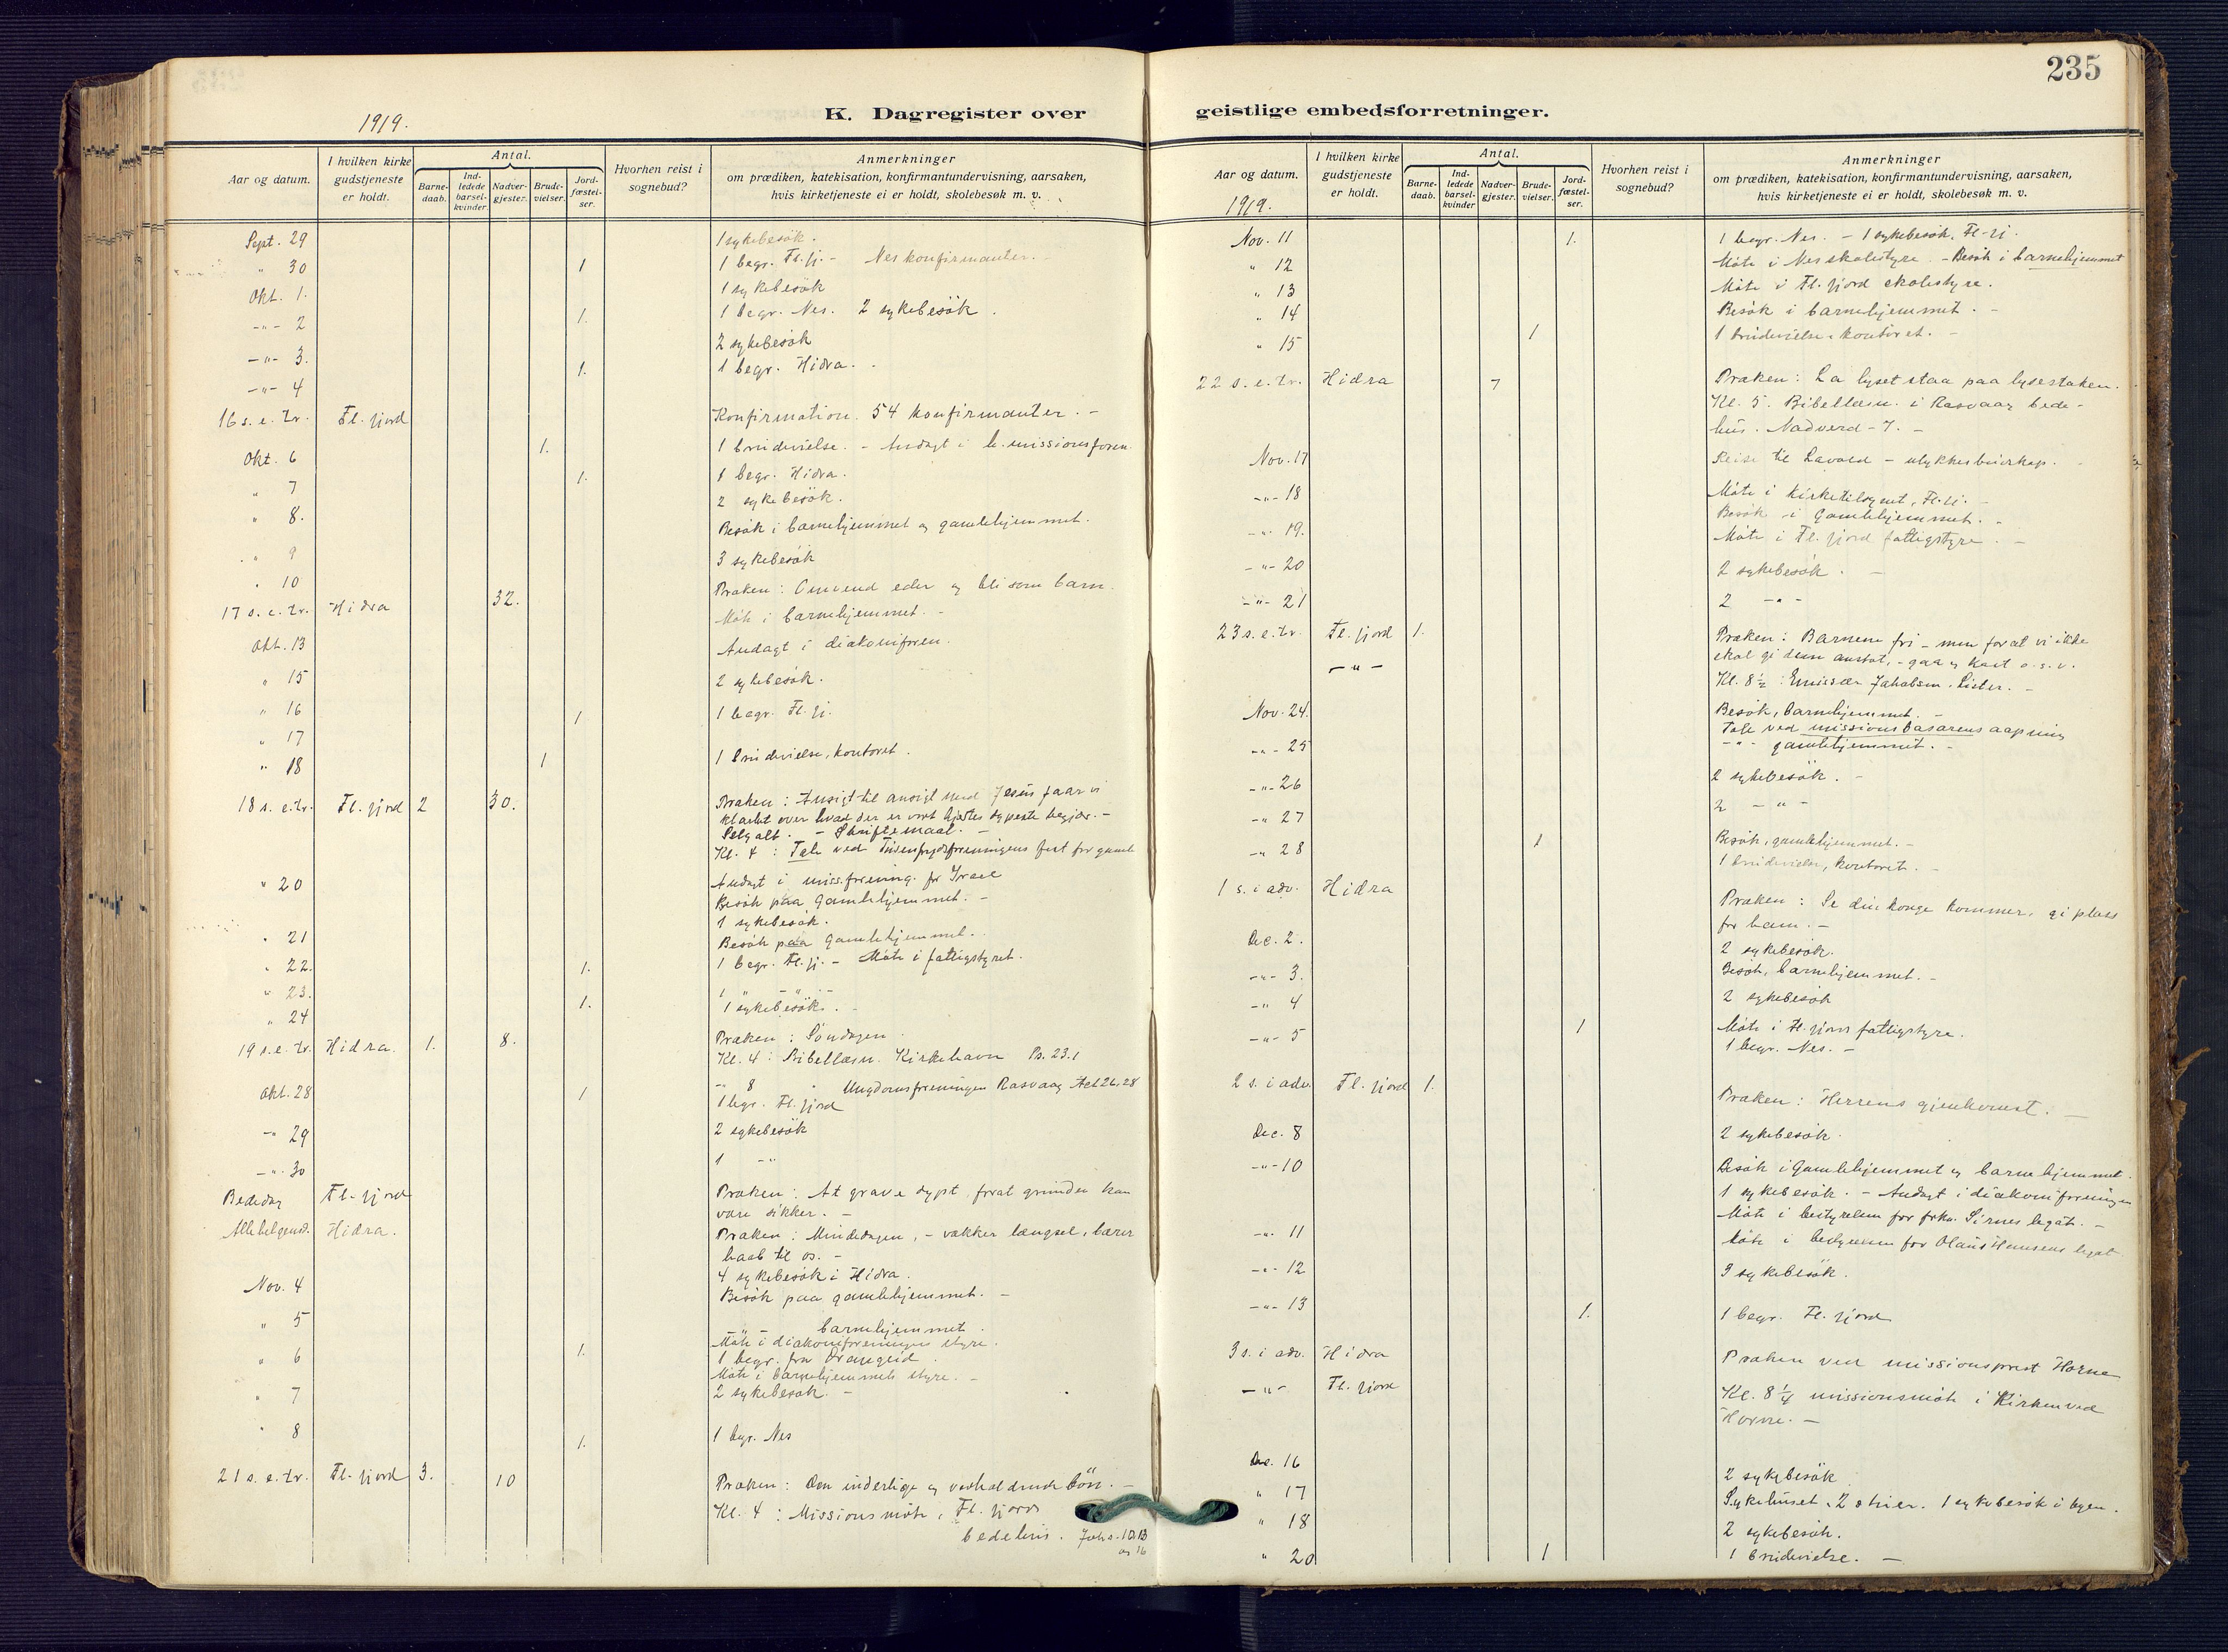 235
1919.
K. Dagregister over geistlige embedsforretninger.
Aar og datum. I hvilken kirke gudstjeneste er holdt. Antal. Barne-daab. Ind-ledede barsel-kvinder. Nadver-gjester. Brude-vielser. Jord-fæstel-ser. Hvorhen reist i sognebud? Anmerkninger om prædiken, katekisation, konfirmantundervisning, aarsaken, hvis kirketjeneste ei er holdt, skolebesøk m. v.
Sept. 29 1 sykebesök.
" 30 1 1 begr. Fl.fj. - Nes konfirmanter. -
Okt. 1. 1 sykebesök
-"- 2 1. 1 begr. Nes. 2 sykebesök.
-"- 3. 2 sykebesök
-"- 4 1. 1 begr. Hidra.
16 s. e. tr. Fl. fjord Konfirmation. 54 konfirmanter. -
Okt. 6 1. 1 brudevielse. - Andagt i
" 7 1. 1 begr. Hidra.
" 8. 2 sykebesök.
Besök i barnehjemmet og gamlehjemmet.
" 9
" 10 3 sykebesök
17 s. e. tr. Hidra 32. Præken: Omvend eder og bli som barn.
Okt. 13 Möte i barnehjemmet. -
" 15 Andagt i diakoniforen.
" 16 2 sykebesök.
" 17 1 1 begr. Fl.fj.
" 18 1 1 brudevielse, kontoret.
18 s. e. tr. Fl. fjord 2 30. Præken: Ansigt til ansigt med Jesus faar vi
klarhet over hvad der er vort hjertes dypeste begjær. -
Selg alt. - Skriftemaal. -
Kl. 4: Tale ved fest for gamle
" 20 Andagt i miss.forening. for Israel
Besök paa Gamlehjemmet. -
1 sykebesök.
" 21 Besök paa Gamlehjemmet.
" 22. 1. 1 begr. Fl.fj. - Möte i fattigstyret.
" 23. 1. 1 " - " -
" 24 1 sykebesök. -
19 s. e. tr. Hidra. 1. 8. Præken: Söndagen.
Kl. 4: Bibellæsn. Kirkehavn Ps. 23.1
-" 8 " Ungdomsforeningen Rasvaag
Okt. 28 1 1 begr. Fl. fjord
-" 29 2 sykebesök
-"- 30 1 -"
Bededag Fl. fjord Præken: At grave dypt, forat grunden kan
være sikker. -
Allehelgensd. Hidra. Præken: Mindedagen, - vækker længsel, bærer
haab til os. -
4 sykebesök i Hidra.
Nov. 4 Besök paa gamlehjemmet. -
" 5 -"- barnehjemmet.
Möte i diakoniforeningens styre.
" 6 1. 1 begr. fra
Möte i barnehjemmets styre. -
" 7 2 sykebesök. -
" 8 1. 1 begr. Nes
21 s. e. tr. Fl. fjord 3. 10 Præken: Den inderlige og vedholdende bön. -
Kl. 4: Missionsmöte, Fl. fjords
bedehus.
Aar og datum. I hvilken kirke gudstjeneste er holdt. Antal. Barne-daab. Ind-ledede barsel-kvinder Nadver-gjester. Brude-vielser. Jord-fæstel-ser. Hvorhen reist i sognebud? Anmerkninger om prædiken, katekisation, konfirmantundervisning, aarsaken, hvis kirketjeneste ei er holdt, skolebesøk m. v.
1919.
Nov. 11 1. 1 begr. Nes. - 1 sykebesök, Fl.fj.
" 12 Möte i Nes skolestyre. - Besök i barnehjemmet
" 13 Möte i Fl. fjord skolestyre.
" 14 Besök i barnehjemmet. -
" 15 1 1 brudevielse, kontoret. -
22 s. e. tr. Hidra 7 Præken: La lyset staa paa lysestaken.
Kl. 5. Bibellæsn. i Rasvaag bede-
hus. Nadverd - 7. -
Nov. 17 Reise til Lavold -
-"- 18 Möte i Kirketilsynet, Fl.fj. -
Besök i Gamlehjemmet. -
-"- 19. Möte i Fl. fjord fattigstyre. -
-"- 20 2 sykebesök. -
-"- 21 2 -"-
23 s. e. tr. Fl. fjord 1. Præken: Barnene fri - men forat vi ikke
skal gi dem anstöt, - gaa og kast o. s. v.
-"- Kl. 8½: Emissær Jakobsen, Lister. -
Nov. 24. Besök, barnehjemmet. -
-"- 25 Tale ved missionsbasarens aapning
-"- gamlehjemmet. -
-"- 26 2 sykebesök. -
-"- 27 2 -"-
-"- 28 1 Besök, gamlehjemmet. -
1 brudevielse, kontoret. -
1 s. i adv. Hidra Præken: Se din konge kommer, gi plass
for ham. -
Dec. 2. 2 sykebesök.
-"- 3. Besök, barnehjemmet. -
-"- 4 2 sykebesök
-"- 5 1 Möte i Fl. fjord fattigstyre.
1 begr. Nes. -
2 s. i adv. Fl. fjord 1. Præken: Herrens gjenkomst. -
Dec. 8 2 sykebesök.
-"- 10 Besök i Gamlehjemmet og barnehjemmet.
1 sykebesök. - Andagt i diakoniforeningen
Möte i bestyrelsen for frkn. Sirnes legat. -
-"- 11 Möte i bestyrelsen for Olaus Hansens legat
-"- 12 3 sykebesök.
-"- 13 1. 1 begr. Fl. fjord
3 s. i adv. Hidra Præken ved missionsprest Horne
-"- Fl. fjord Kl. 8¼ missionsmöte i Kirken ved
Horne. -
Dec. 16 2 sykebesök
" 17 Sykehuset, 1 sykebesök i byen.
" 18 2 sykebesök.
" 20 1 1 brudevielse. -